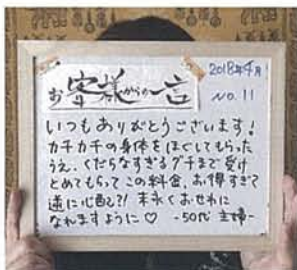 お客様からの一言
2018年4月
NO.11
いつもありがとうございます！
カチカチの身体をほぐしてもらった
うえ、くだらなすぎるグチまで受け
とめてもらってこの料金、お得すぎて
逆に心配?! 末永くおせわに
なれますように♡ -50代 主婦-